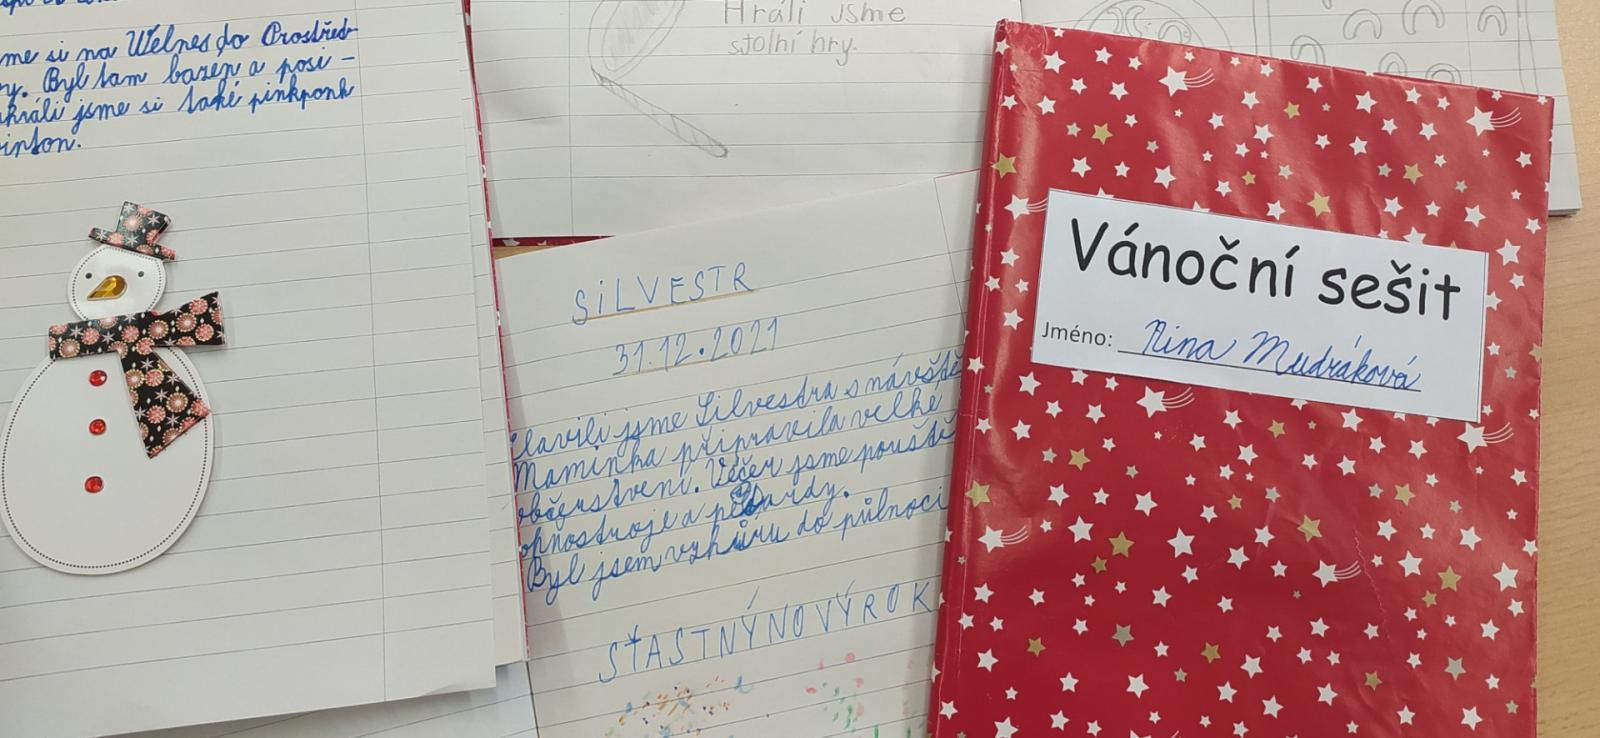 me si na Welnes do Prostřed-
ry. Byl tam bazen a posi-
hráli jsme si také pinkponk
inton.
Hráli jsme
stolní hry.
SiLVESTR
31.12.2021
slavili jsme Silvestra s návště
Maminka připravila velké
občerstvení. Večer jsme pouště
ohnostroje a petardy.
Byl jsem vzhůru do půlnoci
ŠŤASTNÝ NOVÝ ROK
Vánoční sešit
Jméno: Nina Mudráková